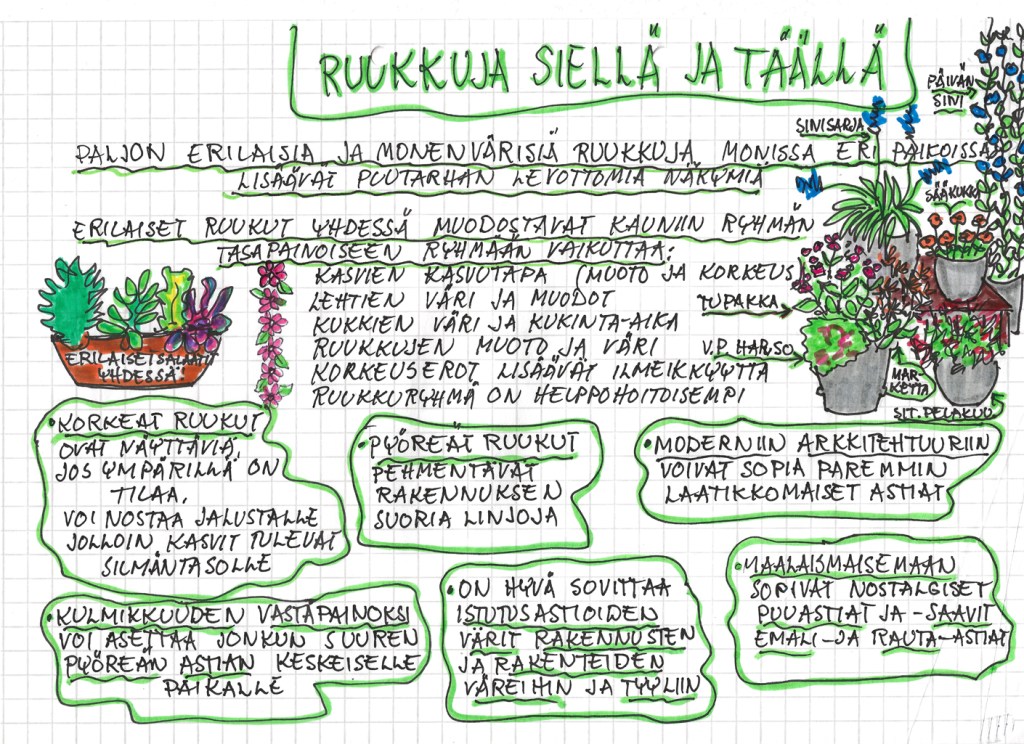 RUUKKUJA SIELLÄ JA TÄÄLLÄ
PÄIVÄN
SINI
SINISARJA
PALJON ERILAISIA JA MONENVÄRISIÄ RUUKKUJA MONISSA ERI PAIKOISSA
LISÄÄVÄT PUUTARHAN LEVOTTOMIA NÄKYMIÄ
SÄÄKUKKA
ERILAISET RUUKUT YHDESSÄ MUODOSTAVAT KAUNIIN RYHMÄN
TASAPAINOISEEN RYHMÄÄN VAIKUTTAA:
KASVIEN KASVUTAPA (MUOTO JA KORKEUS)
LEHTIEN VÄRI JA MUODOT
TUPAKKA
KUKKIEN VÄRI JA KUKINTA-AIKA
RUUKKUJEN MUOTO JA VÄRI
V.P. HARSO
KORKEUSEROT LISÄÄVÄT ILMEIKKYYTTÄ
RUUKKURYHMÄ ON HELPPOHOITOISEMPI
MAR-
KETTA
SIT. PELAKUU
ERILAISET SALAATIT
YHDESSÄ
• KORKEAT RUUKUT
OVAT NÄYTTÄVIÄ,
JOS YMPÄRILLÄ ON
TILAA.
VOI NOSTAA JALUSTALLE
JOLLOIN KASVIT TULEVAT
SILMÄNTASOLLE
• PYÖREÄT RUUKUT
PEHMENTÄVÄT
RAKENNUKSEN
SUORIA LINJOJA
• MODERNIIN ARKKITEHTUURIIN
VOIVAT SOPIA PAREMMIN
LAATIKKOMAISET ASTIAT
• KULMIKKUUDEN VASTAPAINOKSI
VOI ASETTAA JONKUN SUUREN
PYÖREÄN ASTIAN KESKEISELLE
PAIKALLE
• ON HYVÄ SOVITTAA
ISTUTUSASTIOIDEN
VÄRIT RAKENNUSTEN
JA RAKENTEIDEN
VÄREIHIN JA TYYLIIN
• MAALAISMAISEMAAN
SOPIVAT NOSTALGISET
PUUASTIAT JA -SAAVIT
EMALI- JA RAUTA-ASTIAT